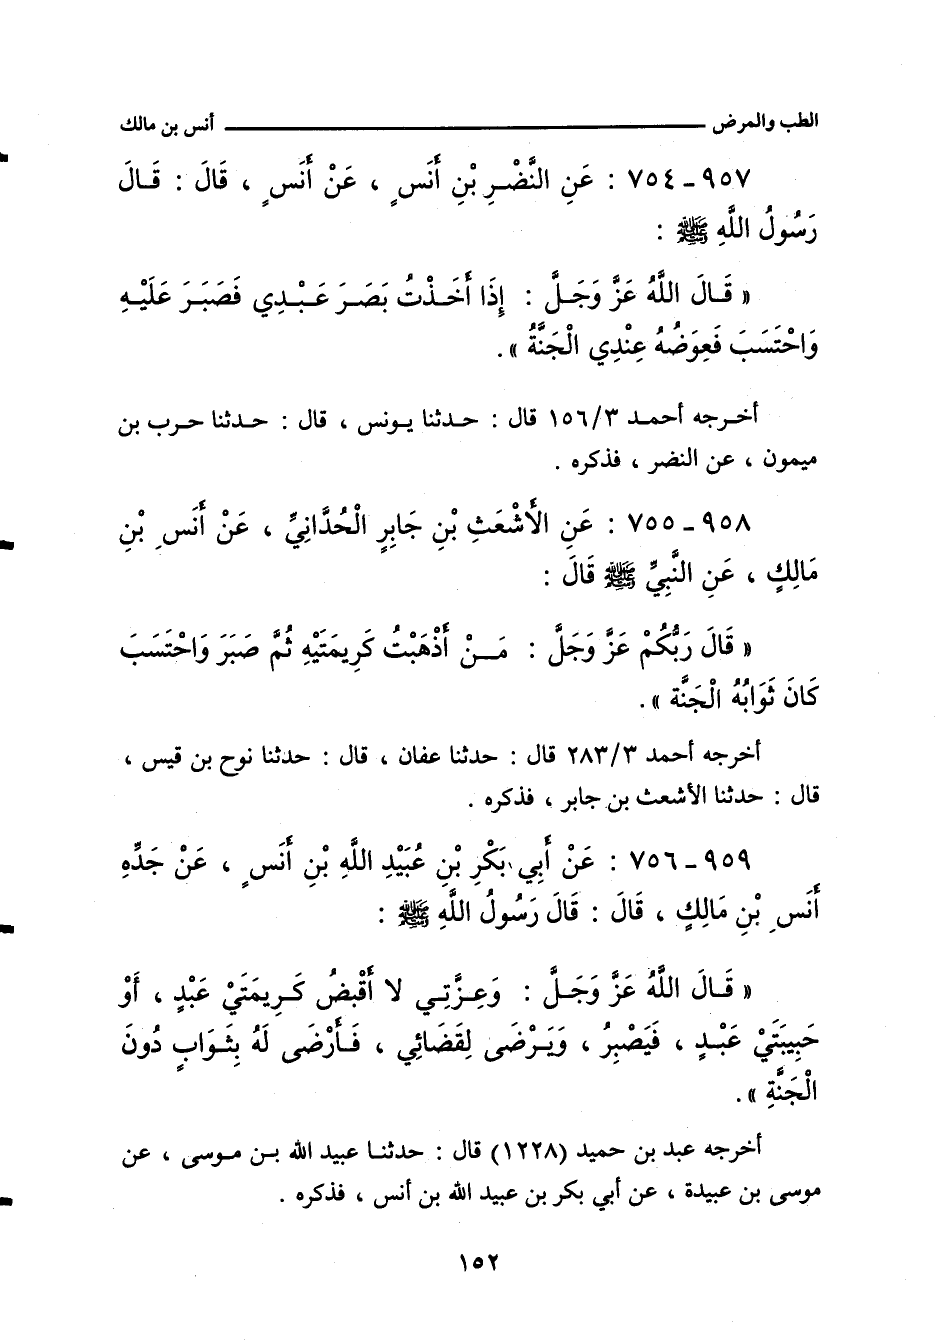 الطب والمرض ــــــــــ أنس بن مالك
٩٥٧ - ٧٥٤ : عَنِ النَّضْرِ بْنِ أَنَسٍ ، عَنْ أَنَسٍ ، قَالَ : قَالَ
رَسُولُ اللَّهِ ﷺ :
« قَالَ اللَّهُ عَزَّ وَجَلَّ : إِذَا أَخَذْتُ بَصَرَ عَبْدِي فَصَبَرَ عَلَيْهِ
وَاحْتَسَبَ فَعِوَضُهُ عِنْدِي الْجَنَّةُ » .
أخرجه أحمد ١٥٦/٣ قال : حدثنا يونس ، قال : حدثنا حرب بن
ميمون ، عن النضر ، فذكره .
٩٥٨ - ٧٥٥ : عَنِ الأَشْعَثِ بْنِ جَابِرٍ الْحُدَّانِيِّ ، عَنْ أَنَسِ بْنِ
مَالِكٍ ، عَنِ النَّبِيِّ ﷺ قَالَ :
« قَالَ رَبُّكُمْ عَزَّ وَجَلَّ : مَنْ أَذْهَبْتُ كَرِيمَتَيْهِ ثُمَّ صَبَرَ وَاحْتَسَبَ
كَانَ ثَوَابُهُ الْجَنَّة » .
أخرجه أحمد ٢٨٣/٣ قال : حدثنا عفان ، قال : حدثنا نوح بن قيس ،
قال : حدثنا الأشعث بن جابر ، فذكره .
٩٥٩ - ٧٥٦ : عَنْ أَبِي بَكْرِ بْنِ عُبَيْدِ اللَّهِ بْنِ أَنَسٍ ، عَنْ جَدِّهِ
أَنَسِ بْنِ مَالِكٍ ، قَالَ : قَالَ رَسُولُ اللَّهِ ﷺ :
« قَالَ اللَّهُ عَزَّ وَجَلَّ : وَعِزَّتِي لا أَقْبِضُ كَرِيمَتَيْ عَبْدٍ ، أَوْ
حَبِيبَتَيْ عَبْدٍ ، فَيَصْبِرُ ، وَيَرْضَى لِقَضَائِي ، فَأَرْضَى لَهُ بِثَوَابٍ دُونَ
الْجَنَّةِ » .
أخرجه عبد بن حميد (١٢٢٨) قال : حدثنا عبيد الله بن موسى ، عن
موسى بن عبيدة ، عن أبي بكر بن عبيد الله بن أنس ، فذكره .
١٥٢